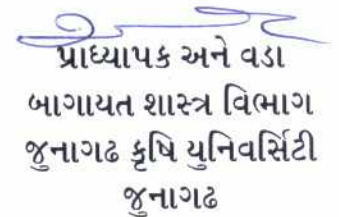 પ્રાધ્યાપક અને વડા
બાગાયત શાસ્ત્ર વિભાગ
જુનાગઢ કૃષિ યુનિવર્સિટી
જુનાગઢ